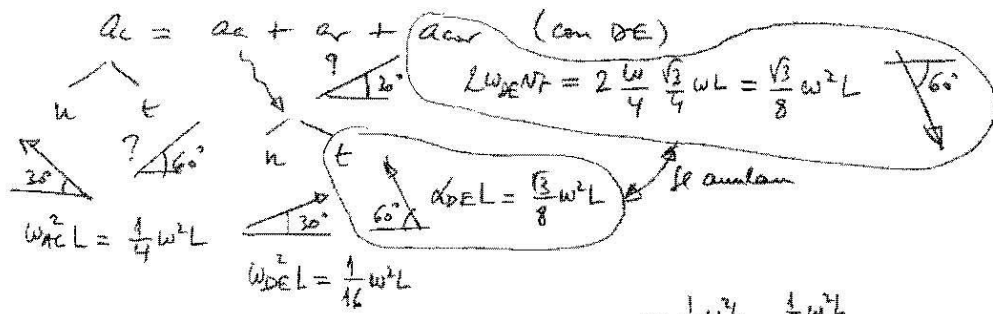 ac = aa + ar + acor (con DE)
n t ? 30° 2ωDE vr = 2 ω/4 √3/4 ωL = √3/8 ω²L 60°
30° ? 60° n t 60° αDE L = √3/8 ω²L Se anulan
ω²AC L = 1/4 ω²L 30°
ω²DE L = 1/16 ω²L
1/4 ω²L 1/16 ω²L